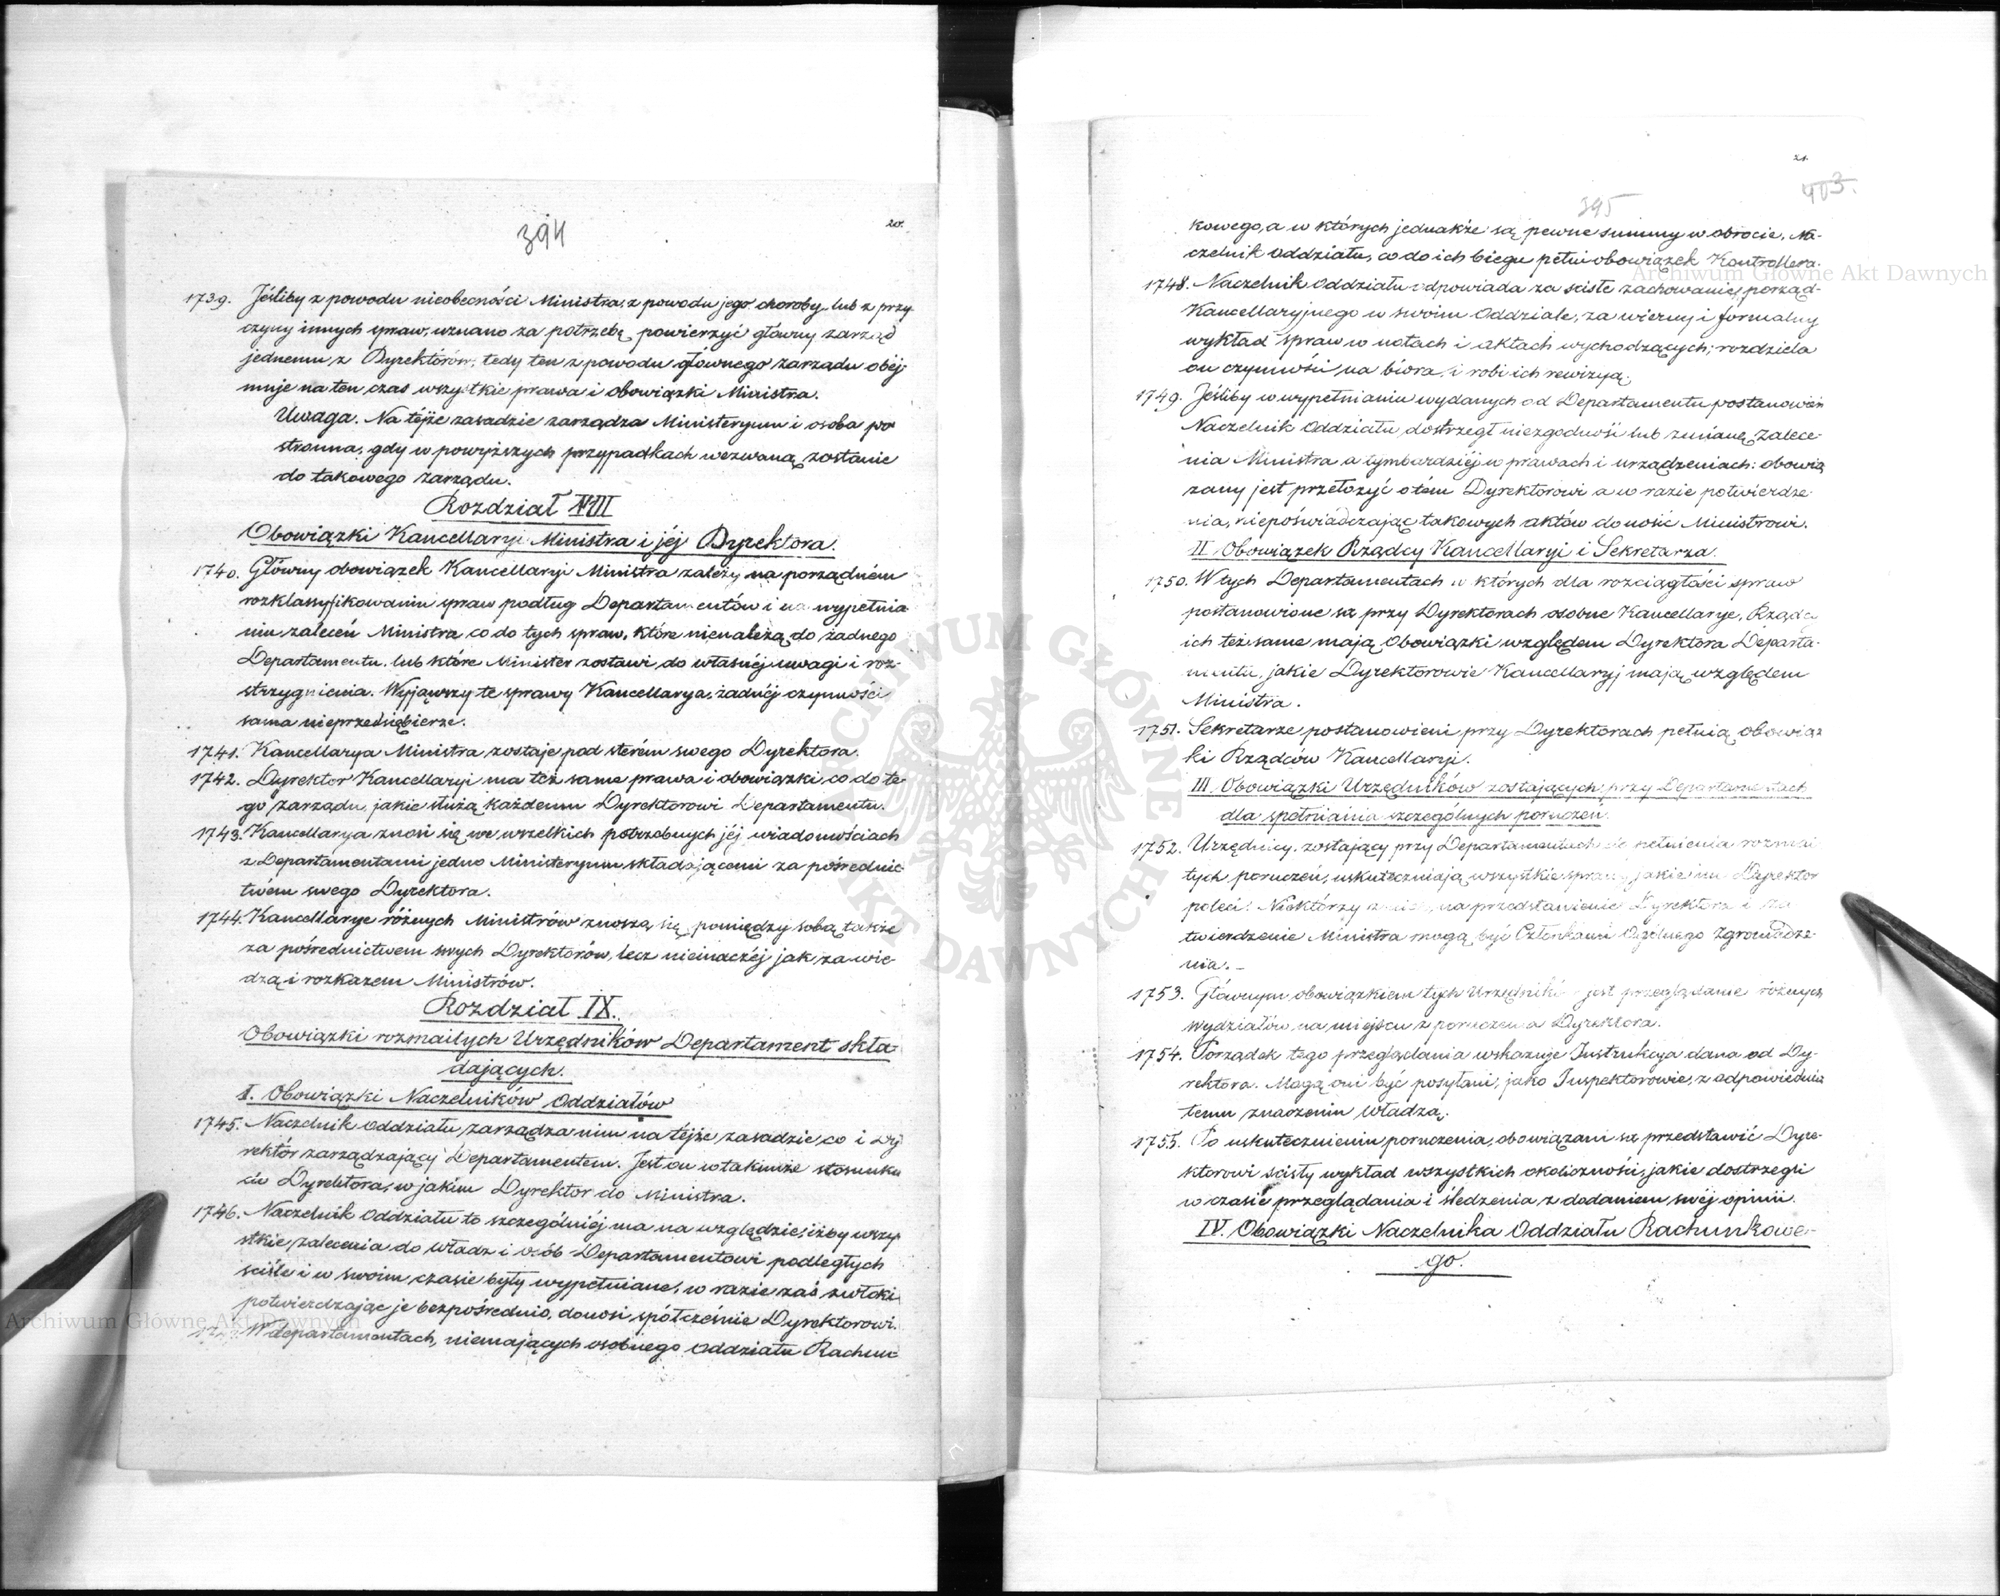 394
20.
1739. Jeśliby z powodu nieobecności Ministra, z powodu jego choroby lub z przy
czyny innych spraw, uznano za potrzebą powierzyć główny zarząd
jednemu z Dyrektórów, tedy ten z powodu głównego zarządu obej-
muje na ten czas wszystkie prawa i obowiązki Ministra.
Uwaga. Na téjże zasadzie zarządza Ministeryum i osoba po
stronna, gdy w powyższych przypadkach wezwaną zostanie
do takowego zarządu.
Rozdział VIII
Obowiązki Kancellaryi Ministra i jéj Dyrektora.
1740. Główny obowiązek Kancellaryi Ministra zależy na porządném
rozklassyfikowaniu spraw podług Departamentów i na wypełnia
niu zaleceń Ministra co do tych spraw, które nienależą do żadnego
Departamentu, lub które Minister zostawi do własnéj uwagi i roz-
strzygnienia. Wyjąwszy te sprawy Kancellarya, żadnéj czynności
sama nieprzedsiębierze.
1741. Kancellarya Ministra zostaje pod sterém swego Dyrektora.
1742. Dyrektor Kancellaryi ma też same prawa i obowiązki co do te-
go zarządu, jakie służą każdemu Dyrektorowi Departamentu.
1743. Kancellarya znosi się we wszelkich potrzebnych jéj wiadomościach
z Departamentami jedno Ministeryum składającemi za pośrednic-
twém swego Dyrektora.
1744. Kancellarye różnych Ministrów znoszą się pomiędzy sobą także
za pośrednictwem swych Dyrektorów, lecz nieinaczéj jak za wie-
dzą i rozkazem Ministrów.
Rozdział IX.
Obowiązki rozmaitych Urzędników Departament skła-
dających.
I. Obowiązki Naczelników Oddziałów
1745. Naczelnik Oddziału, zarządza nim na téjże zasadzie, co i Dy
rektór zarządzający Departamentem. Jest on w takimże stosunku
do Dyrektora, w jakim Dyrektor do Ministra.
1746. Naczelnik Oddziału to szczególniéj ma na względzie, iżby wszy
stkie zalecenia do władz i osób Departamentowi podległych
sciśle i w swoim czasie były wypełniane, w razie zaś zwłoki
potwierdzając je bezpośrednio, donosi spółcześnie Dyrektorowi.
W departamentach, niemających osobnego Oddziału Rachun-
21.
395
403.
kowego, a w których jednakże są pewne summy w obrocie, Na-
czelnik Oddziału, co do ich biegu pełni obowiązek Kontrollera.
1748. Naczelnik Oddziału odpowiada za ścisłe zachowanie porząd-
Kancellaryjnego w swoim Oddziale, za wierny i formalny
wykład spraw w notach i aktach wychodzących; rozdziela
on czynności na bióra, i robi ich rewizyą.
1749. Jeśliby w wypełnianiu wydanych od Departamentu postanowień
Naczelnik Oddziału, dostrzegł niezgodność lub zmianę zalece-
nia Ministra a tymbardziéj w prawach i urządzeniach: obowią
zany jest przełożyć o tém Dyrektorowi a w razie potwierdze-
nia, niepoświadczając takowych aktów donosić Ministrowi.
II. Obowiązek Rządcy Kancellaryi i Sekretarza.
1750. W tych Departamentach w których dla rozciągłości spraw
postanowione są przy Dyrektorach osobne Kancellarye, Rządcy
ich też same mają obowiązki względem Dyrektora Departa-
mentu, jakie Dyrektorowie Kancellaryj mają względem
Ministra.
1751. Sekretarze postanowieni przy Dyrektorach pełnią obowiąz
ki Rządców Kancellaryi.
III. Obowiązki Urzędników zostających przy Departamentach
dla spełniania szczególnych poruczeń.
1752. Urzędnicy, zostający przy Departamentach do pełnienia rozmai
tych poruczeń, uskuteczniają wszystkie sprawy jakie im Dyrektor
poleci. Niektórzy z nich, na przedstawienie Dyrektora i za
twierdzenie Ministra mogą być Członkami Ogólnego Zgromadze-
nia. –
1753. Głównym obowiązkiem tych Urzędników jest przeglądanie różnych
Wydziałów, na miejscu z poruczenia Dyrektora.
1754. Porządek tego przeglądania wskazuje Instrukcya dana od Dy-
rektora. Mogą oni być posyłani, jako Inspektorowie, z odpowiednią
temu znaczeniu władzą.
1755. Po uskutecznieniu poruczenia, obowiązani są przedstawić Dyre-
ktorowi ścisły wykład wszystkich okoliczności, jakie dostrzegli
w czasie przeglądania i śledzenia, z dodaniem swéj opinii.
IV. Obowiązki Naczelnika Oddziału Rachunkowe-
go.
Archiwum Główne Akt Dawnych
Archiwum Główne Akt Dawnych
ARCHIWUM GŁÓWNE AKT DAWNYCH